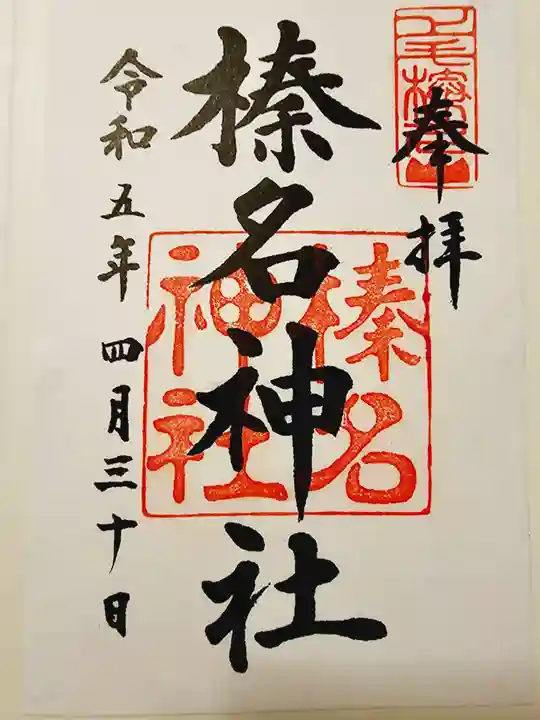 奉拝
榛名神社
令和五年 四月三十日
榛名
神社